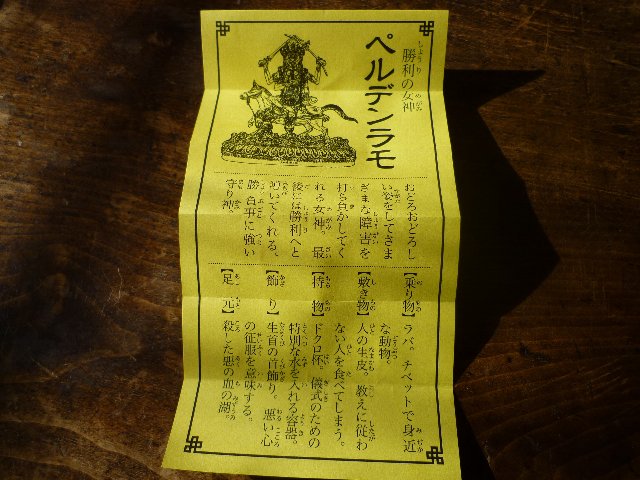 勝利の女神
ペルデンラモ
おどろおどろし
い姿をしてさま
ざまな障害を
打ち負かしてく
れる女神。最
後には勝利へと
導いてくれる、
勝負事に強い
守り神。
【乗り物】ラバ。チベットで身近
な動物。
【敷き物】人の生皮。教えに従わ
ない人を食べてしまう。
【持物】ドクロ杯。儀式のための
特別な水を入れる容器。
【飾り】生首の首飾り。悪い心
の征服を意味する。
【足元】殺した悪の血の湖。